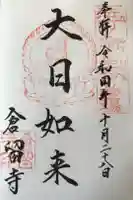 奉拝 令和四年十月二十八日
大日如来
倉留寺